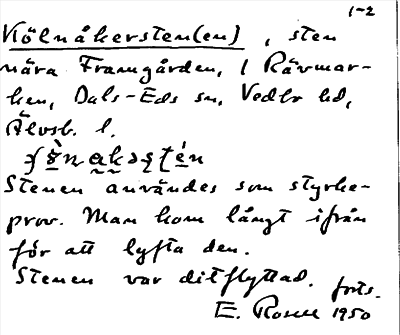 1-2
Kölnåkersten(en), sten
nära Framgården, i Rävmar-
ken, Dals-Eds sn, Vedbo hd,
Älvsb. l.
Stenen användes som styrke-
prov. Man kom långt ifrån
för att lyfta den.
Stenen var ditflyttad. forts.
E. Rosell 1950